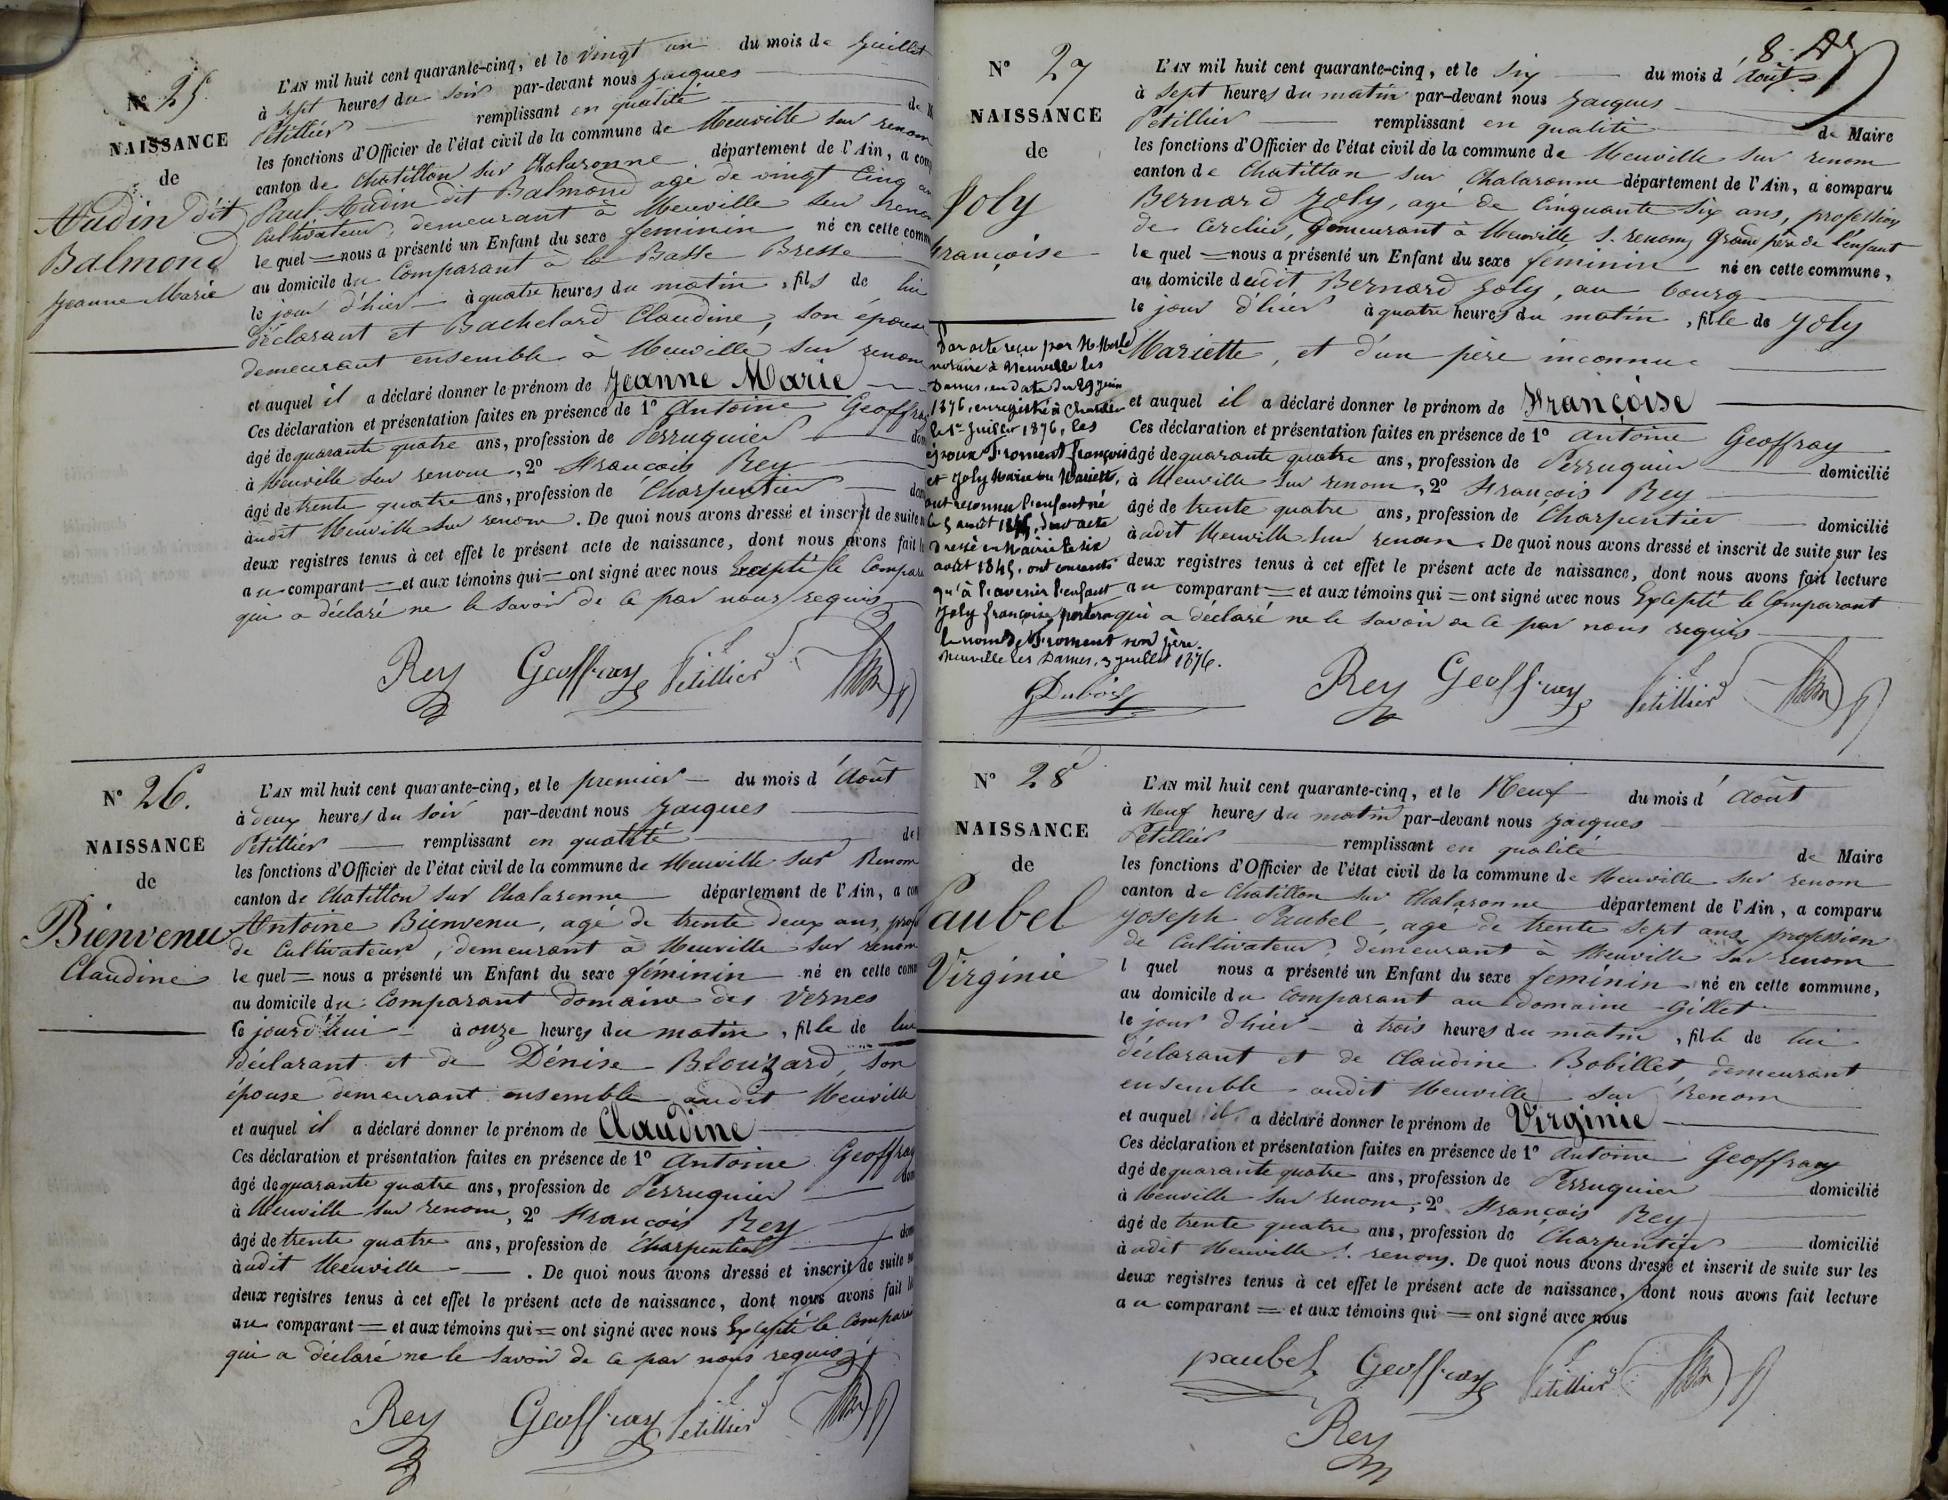 N° 25
NAISSANCE
de
Audin dit
Balmond
Jeanne Marie
L'AN mil huit cent quarante-cinq, et le vingt un du mois de Juillet
à sept heures du soir par-devant nous Jacques
Petillier remplissant en qualité de M
les fonctions d'Officier de l'état civil de la commune de Neuville sur renom
canton de Chatillon sur Chalaronne, département de l'Ain, a com
Paul Audin dit Balmond agé de vingt cinq an
Cultivateur, demeurant à Neuville sur renom
le quel = nous a présenté un Enfant du sexe feminin né en cette comm
au domicile du Comparant à la Basse Bresse
le jour d'hier à quatre heures du matin, fils de lui
déclarant et Bachelard Claudine, son épouse
demeurant ensemble à Neuville sur renom
et auquel il a déclaré donner le prénom de Jeanne Marie
Ces déclaration et présentation faites en présence de 1° Antoine Geoffray
âgé de quarante quatre ans, profession de Perruquier dom
à Neuville sur renom, 2° François Rey
âgé de trente quatre ans, profession de Charpentier dom
à udit Neuville sur renom. De quoi nous avons dressé et inscrit de suite
deux registres tenus à cet effet le présent acte de naissance, dont nous avons fait l
au comparant = et aux témoins qui = ont signé avec nous Excepté le Compara
qui a déclaré ne le savoir de ce par nous requis
Rey Geoffray Petillier
N° 26.
NAISSANCE
de
Bienvenu
Claudine
L'AN mil huit cent quarante-cinq, et le premier du mois d'Août
à deux heures du soir par-devant nous Jacques
Petillier remplissant en qualité de
les fonctions d'Officier de l'état civil de la commune de Neuville sur Renom
canton de Chatillon sur Chalaronne département de l'Ain, a com
Antoine Bienvenu, agé de trente deux ans, prof
de Cultivateur, demeurant à Neuville sur renom
le quel = nous a présenté un Enfant du sexe féminin né en cette comm
au domicile du Comparant domaine des Vernes
le jourd'hui à onze heures du matin, fille de lui
déclarant et de Dénise Blouzard, son
épouse demeurant ensemble audit Neuville
et auquel il a déclaré donner le prénom de Claudine
Ces déclaration et présentation faites en présence de 1° Antoine Geoffray
âgé de quarante quatre ans, profession de Perruquier dom
à Neuville sur renom, 2° François Rey
âgé de trente quatre ans, profession de Charpentier dom
à udit Neuville. De quoi nous avons dressé et inscrit de suite su
deux registres tenus à cet effet le présent acte de naissance, dont nous avons fait le
au comparant = et aux témoins qui = ont signé avec nous Excepté le Compara
qui a déclaré ne le savoir de ce par nous requis
Rey Geoffray Petillier
N° 27
NAISSANCE
de
Joly
Françoise
Par acte reçu par M. Morel
notaire à Neuville les
Dames, en date du 29 Juin
1876, enregistré à Chatillon
le 1er Juillet 1876, les
époux Froment François
et Joly Marie ou Mariette,
ont reconnu l'enfant né
le 5 août 1845, dont acte
dressé en Mairie le six
août 1845, ont consenti
qu'à l'avenir l'enfant
Joly françoise portera
le nom de Froment son père.
Neuville les Dames, 3 Juillet 1876.
Dubost
8.
L'AN mil huit cent quarante-cinq, et le six du mois d'Août
à sept heures du matin par-devant nous Jacques
Petillier remplissant en qualité de Maire
les fonctions d'Officier de l'état civil de la commune de Neuville sur renom
canton de Chatillon sur Chalaronne département de l'Ain, a comparu
Bernard Joly, agé de Cinquante Six ans, profession
de Cerclier, Demeurant à Neuville s. renom, Grand père de l'enfant
le quel = nous a présenté un Enfant du sexe feminin né en cette commune,
au domicile dudit Bernard Joly, au bourg
le jour d'hier à quatre heures du matin, fille de Joly
Mariette, et d'un père inconnu
et auquel il a déclaré donner le prénom de Françoise
Ces déclaration et présentation faites en présence de 1° Antoine Geoffray
âgé de quarante quatre ans, profession de Perruquier domicilié
à Neuville sur renom, 2° François Rey
âgé de trente quatre ans, profession de Charpentier domicilié
à audit Neuville sur renom. De quoi nous avons dressé et inscrit de suite sur les
deux registres tenus à cet effet le présent acte de naissance, dont nous avons fait lecture
au comparant = et aux témoins qui = ont signé avec nous Excepté le Comparant
qui a déclaré ne le savoir de ce par nous requis
Rey Geoffray Petillier
N° 28
NAISSANCE
de
Paubel
Virginie
L'AN mil huit cent quarante-cinq, et le Neuf du mois d'Août
à Neuf heures du matin par-devant nous Jacques
Petillier remplissant en qualité de Maire
les fonctions d'Officier de l'état civil de la commune de Neuville sur renom
canton de Chatillon sur Chalaronne département de l'Ain, a comparu
Joseph Paubel, agé de trente Sept ans, profession
de Cultivateur, demeurant à Neuville sur renom
l quel nous a présenté un Enfant du sexe féminin né en cette commune,
au domicile du Comparant au domaine Gillet
le jour d'hier à trois heures du matin, fille de lui
déclarant et de Claudine Bobillet, demeurant
ensemble audit Neuville sur Renom
et auquel il a déclaré donner le prénom de Virginie
Ces déclaration et présentation faites en présence de 1° Antoine Geoffray
âgé de quarante quatre ans, profession de Perruquier domicilié
à Neuville sur renom, 2° François Rey
âgé de trente quatre ans, profession de Charpentier domicilié
à udit Neuville s. renom. De quoi nous avons dressé et inscrit de suite sur les
deux registres tenus à cet effet le présent acte de naissance, dont nous avons fait lecture
au comparant = et aux témoins qui = ont signé avec nous
paubel Geoffray Petillier
Rey